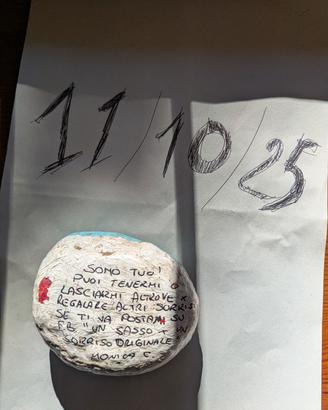 11/10/25
SONO TUO!
PUOI TENERMI O
LASCIARMI ALTROVE X
REGALARE ALTRI SORRISI
SE TI VA POSTAMI SU
FB "UN SASSO UN
SORRISO ORIGINALE
MONICA C